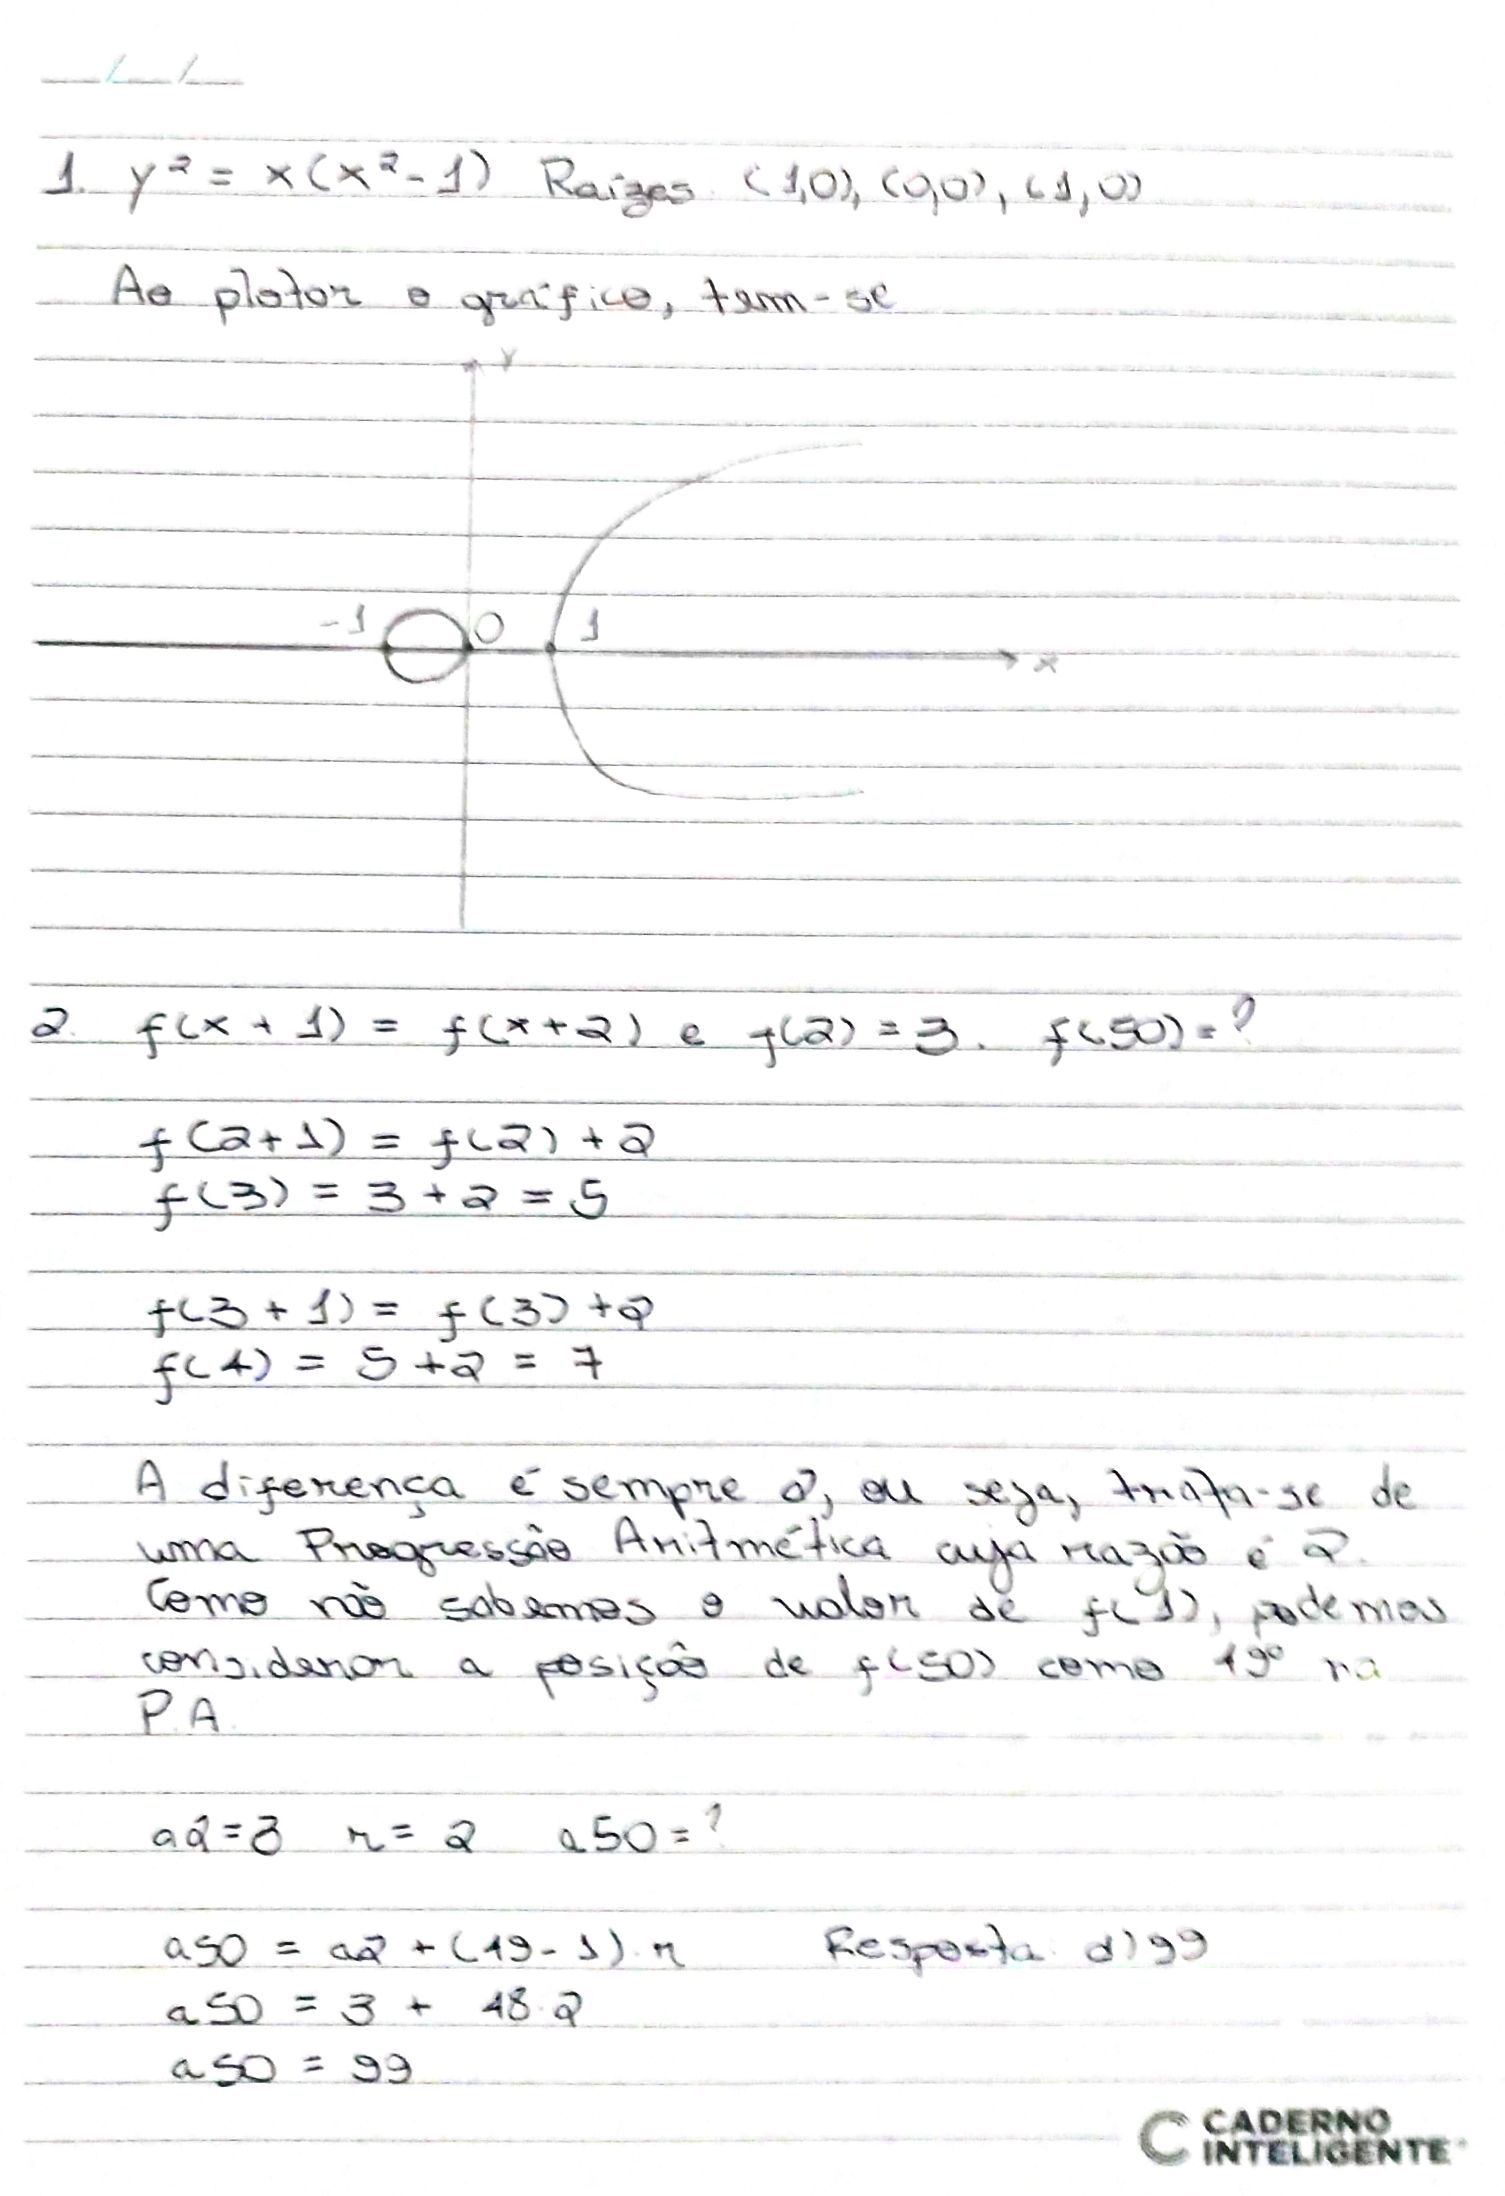 1. y² = x(x² - 1) Raízes. (1,0), (0,0), (1,0)
Ao plotar o gráfico, tem-se
y
-1 0 1
x
2. f(x + 1) = f(x+2) e f(2) = 3. f(50) = ?
f(2+1) = f(2) + 2
f(3) = 3 + 2 = 5
f(3 + 1) = f(3) + 2
f(4) = 5 + 2 = 7
A diferença é sempre 2, ou seja, trata-se de
uma Progressão Aritmética cuja razão é 2.
Como não sabemos o valor de f(1), podemos
considerar a posição de f(50) como 49º na
P.A.
a2 = 3 r = 2 a50 = ?
a50 = a2 + (49 - 1) . r Resposta: d) 99
a50 = 3 + 48 . 2
a50 = 99
CADERNO
INTELIGENTE